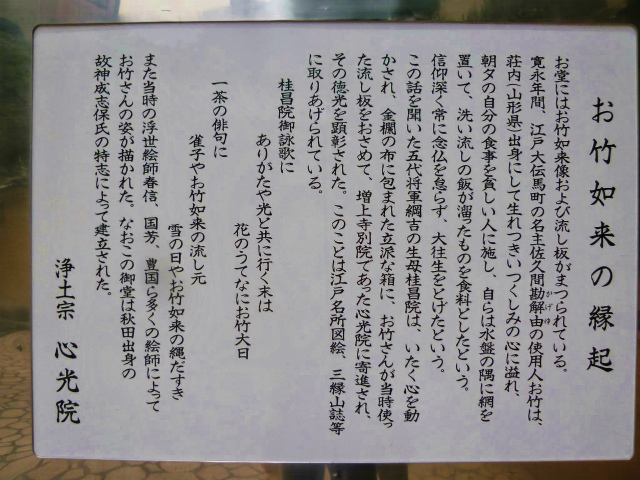 お竹如来の縁起
お堂にはお竹如来像および流し板がまつられている。
寛永年間、江戸大伝馬町の名主佐久間勘解由の使用人お竹は、
かげゆ
荘内(山形県)出身にして生れつきいつくしみの心に溢れ、
朝夕の自分の食事を貧しい人に施し、自らは水盤の隅に網を
置いて、洗い流しの飯が溜ったものを食料としたという。
信仰深く常に念仏を怠らず、大往生をとげたという。
この話を聞いた五代将軍綱吉の生母桂昌院は、いたく心を動
かされ、金襴の布に包まれた立派な箱に、お竹さんが当時使っ
た流し板をおさめて、増上寺別院であった心光院に寄進され、
その徳光を顕彰された。このことは江戸名所図絵、三縁山誌等
に取りあげられている。
桂昌院御詠歌に
ありがたや光と共に行く末は
花のうてなにお竹大日
一茶の俳句に
雀子やお竹如来の流し元
雪の日やお竹如来の縄だすき
また当時の浮世絵師春信、国芳、豊国ら多くの絵師によって
お竹さんの姿が描かれた。なおこの御堂は秋田出身の
故神成志保氏の特志によって建立された。
浄土宗 心光院